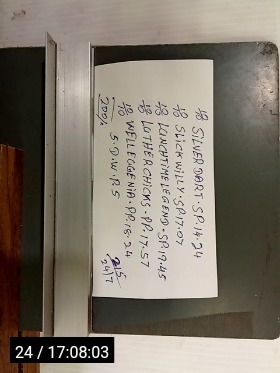 1/8 SILVER DART . SP. 14-24
1/8 SLICK WILLY . SP. 17-07
1/8 LUNCHTIME LEGEND . SP. 19-45
1/8 LUTHER CHICKS . PP. 17-57
1/8 WELLEGGENIA . PP. 18-24
200/1 5.D.W.P.S
24/7
24 / 17:08:03